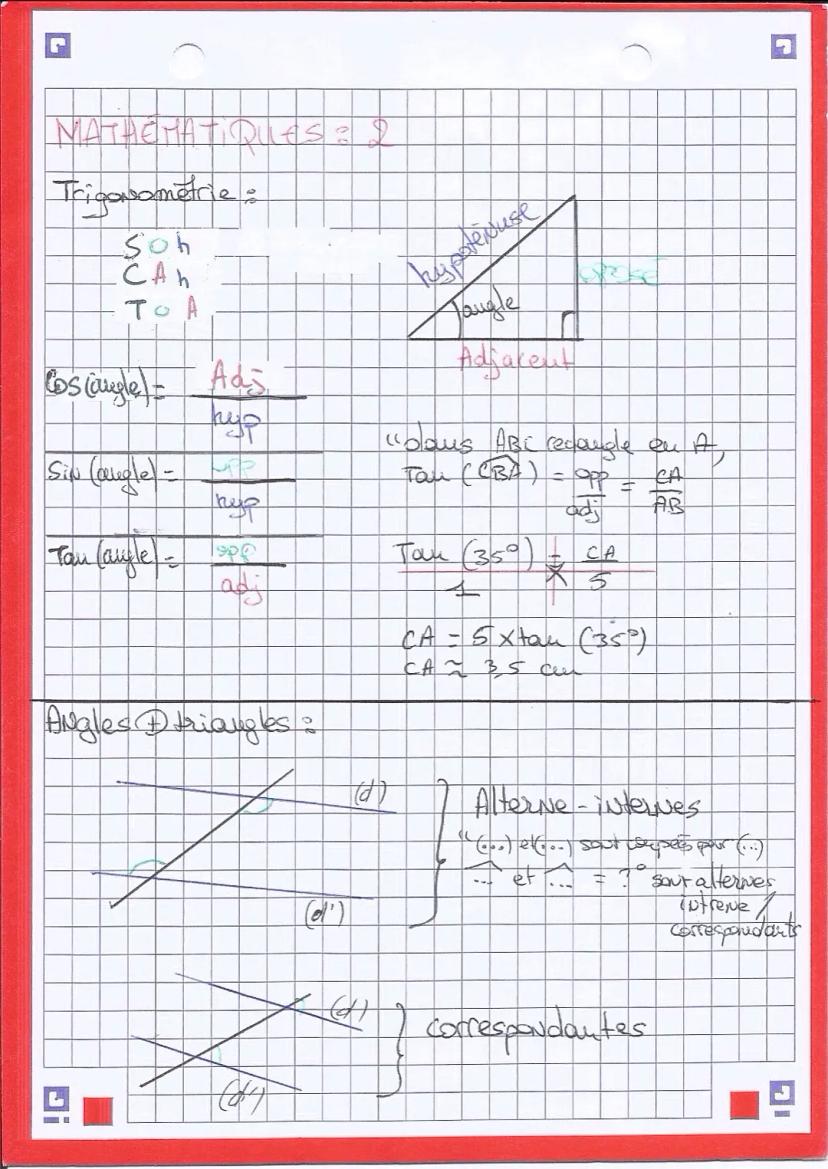 MATHÉMATIQUES : 2
Trigonométrie :
SOh
CAh
TOA
hypoténuse
opposé
angle
Adjacent
Cos (angle) = Adj
hyp
Sin (angle) = opp
hyp
Tan (angle) = opp
adj
"dans ABC recangle en A,
Tan (CBA) = opp = CA
adj AB
Tan (35°) = CA
1 5
CA = 5 x tan (35°)
CA ≈ 3,5 cm
Angles + triangles :
(d)
(d')
Alterne-internes
"(...) et (...) sont coupées par (...)
... et ... = ?° sont alternes
interne /
correspondants
(d)
(d')
correspondantes